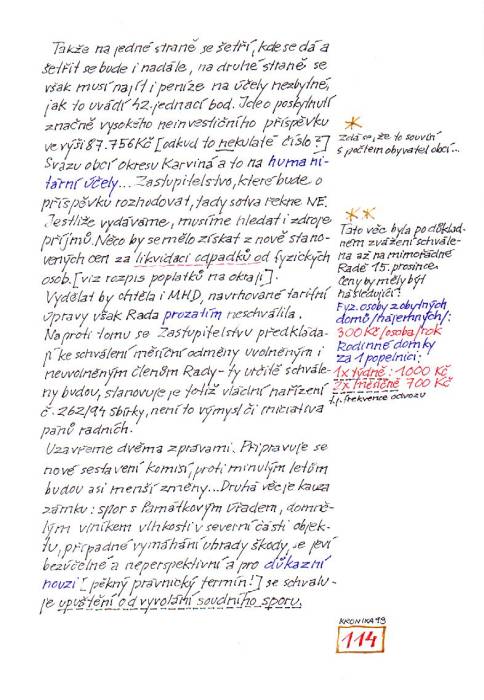 Takže na jedné straně se šetří, kde se dá a
šetřit se bude i nadále, na druhé straně se
však musí najít i peníze na účely nezbytné,
jak to uvádí 42. jednací bod. Jde o poskytnutí
značně vysokého neinvestičního příspěvku
ve výši 87.756Kč [odkud to nekulaté číslo?]
Svazu obcí okresu Karviná a to na humani-
tární účely... Zastupitelstvo, které bude o
příspěvku rozhodovat, tady sotva řekne NE.
Jestliže vydáváme, musíme hledat i zdroje
příjmů. Něco by se mělo získat z nově stano-
vených cen za likvidaci odpadků od fyzických
osob. [viz rozpis poplatků na okraji].
Vydělat by chtěla i MHD, navrhované tarifní
úpravy však Rada prozatím neschválila.
Naproti tomu se Zastupitelstvu předkláda-
jí ke schválení měsíční odměny uvolněným i
neuvolněným členům Rady - ty určitě schvále-
ny budou, stanovuje je totiž vládní nařízení
č. 262/94 sbírky, není to výmysl či iniciativa
pánů radních.
Uzavřeme dvěma zprávami. Připravuje se
nové sestavení komisí, proti minulým letům
budou asi menší změny... Druhá věc je kauza
zámku: spor s Památkovým úřadem, domně-
lým viníkem vlhkosti v severní části objek-
tu, případné vymáhání úhrady škody, se jeví
bezúčelné a neperspektivní a pro důkazní
nouzi [pěkný právnický termín!] se schvalu-
je upuštění od vyvolání soudního sporu.
*
Zdá se, že to souvisí
s počtem obyvatel obcí...
**
Tato věc byla po důklad-
ném zvážení schvále-
na až na mimořádné
Radě 15. prosince.
Ceny by měly být
následující:
Fyz. osoby z obytných
domů /nájemných/:
300 Kč/osoba/rok
Rodinné domky
za 1 popelnici:
1x týdně: 1000 Kč
2x měsíčně 700 Kč
t.j. frekvence odvozu
KRONIKA 93
114